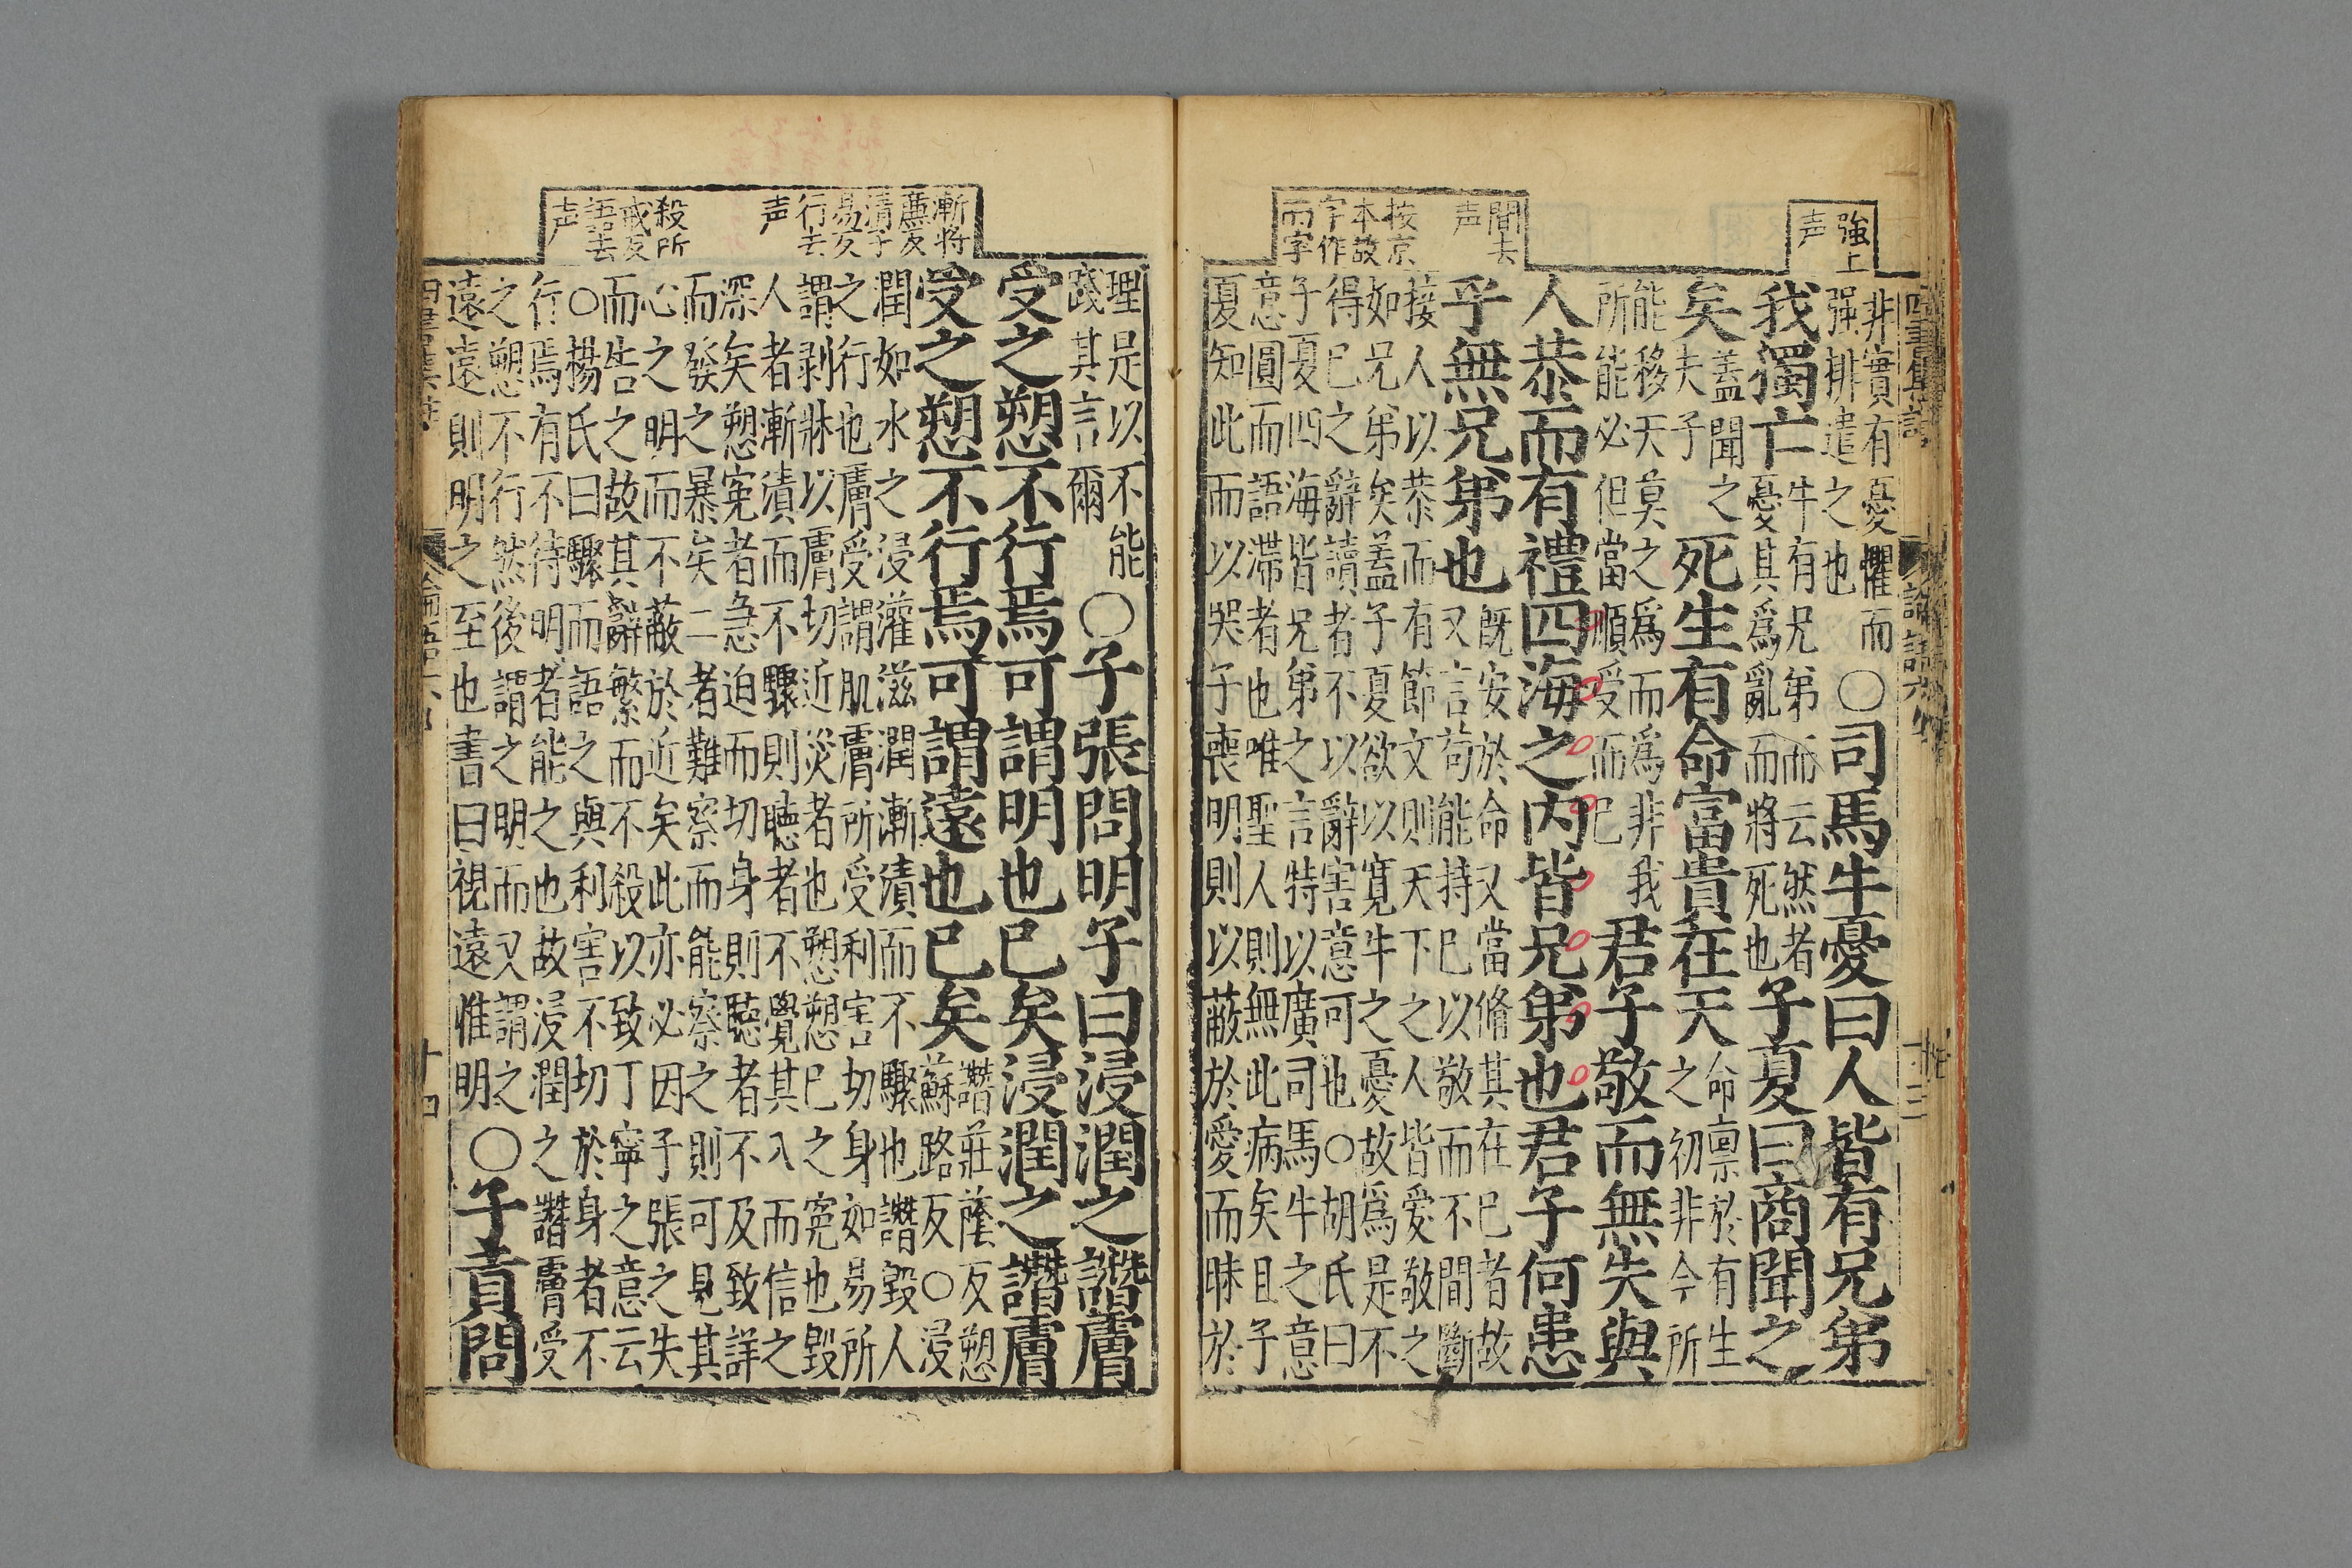 強上
声
間去
声
按京
本故
字作
而字
非實有憂懼而
强排遣之也
○司馬牛憂曰人皆有兄弟
我獨亡
牛有兄弟而云然者
憂其爲亂而將死也
子夏曰商聞之
矣
蓋聞之
夫子
死生有命富貴在天
命禀於有生
之初非今所
能移天莫之爲而爲非我
所能必但當順受而已
君子敬而無失與
人恭而有禮四海之内皆兄弟也君子何患
乎無兄弟也
既安於命又當脩其在已者故
又言苟能持已以敬而不間斷
接人以恭而有節文則天下之人皆愛敬之
如兄弟矣蓋子夏欲以寬牛之憂故爲是不
得已之辭讀者不以辭害意可也○胡氏曰
子夏四海皆兄弟之言特以廣司馬牛之意
意圓而語滞者也唯聖人則無此病矣且子
夏知此而以哭子喪明則以蔽於愛而昧於
漸將
廉反
清子
易反
行去
声
殺所
戒反
語去
声
理是以不能
踐其言爾
○子張問明子曰浸潤之譖膚
受之愬不行焉可謂明也已矣浸潤之譖膚
受之愬不行焉可謂遠也已矣
譖莊蔭反愬
蘇路反○浸
潤如水之浸灌滋潤漸漬而不驟也譖毀人
之行也膚受謂肌膚所受利害切身如易所
謂剥牀以膚切近災者也愬愬已之寃也毀
人者漸漬而不驟則聽者不覺其入而信之
深矣愬寃者急迫而切身則聽者不及致詳
而發之暴矣二者難察而能察之則可見其
心之明而不蔽於近矣此亦必因子張之失
而告之故其辭繁而不殺以致丁寧之意云
○楊氏曰驟而語之與利害不切於身者不
行焉有不待明者能之也故浸潤之譖膚受
之愬不行然後謂之明而又謂之
遠遠則明之至也書曰視遠惟明
○子貢問
十四